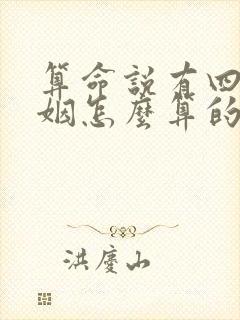 算命說有四
姻怎麼算的
洪慶山